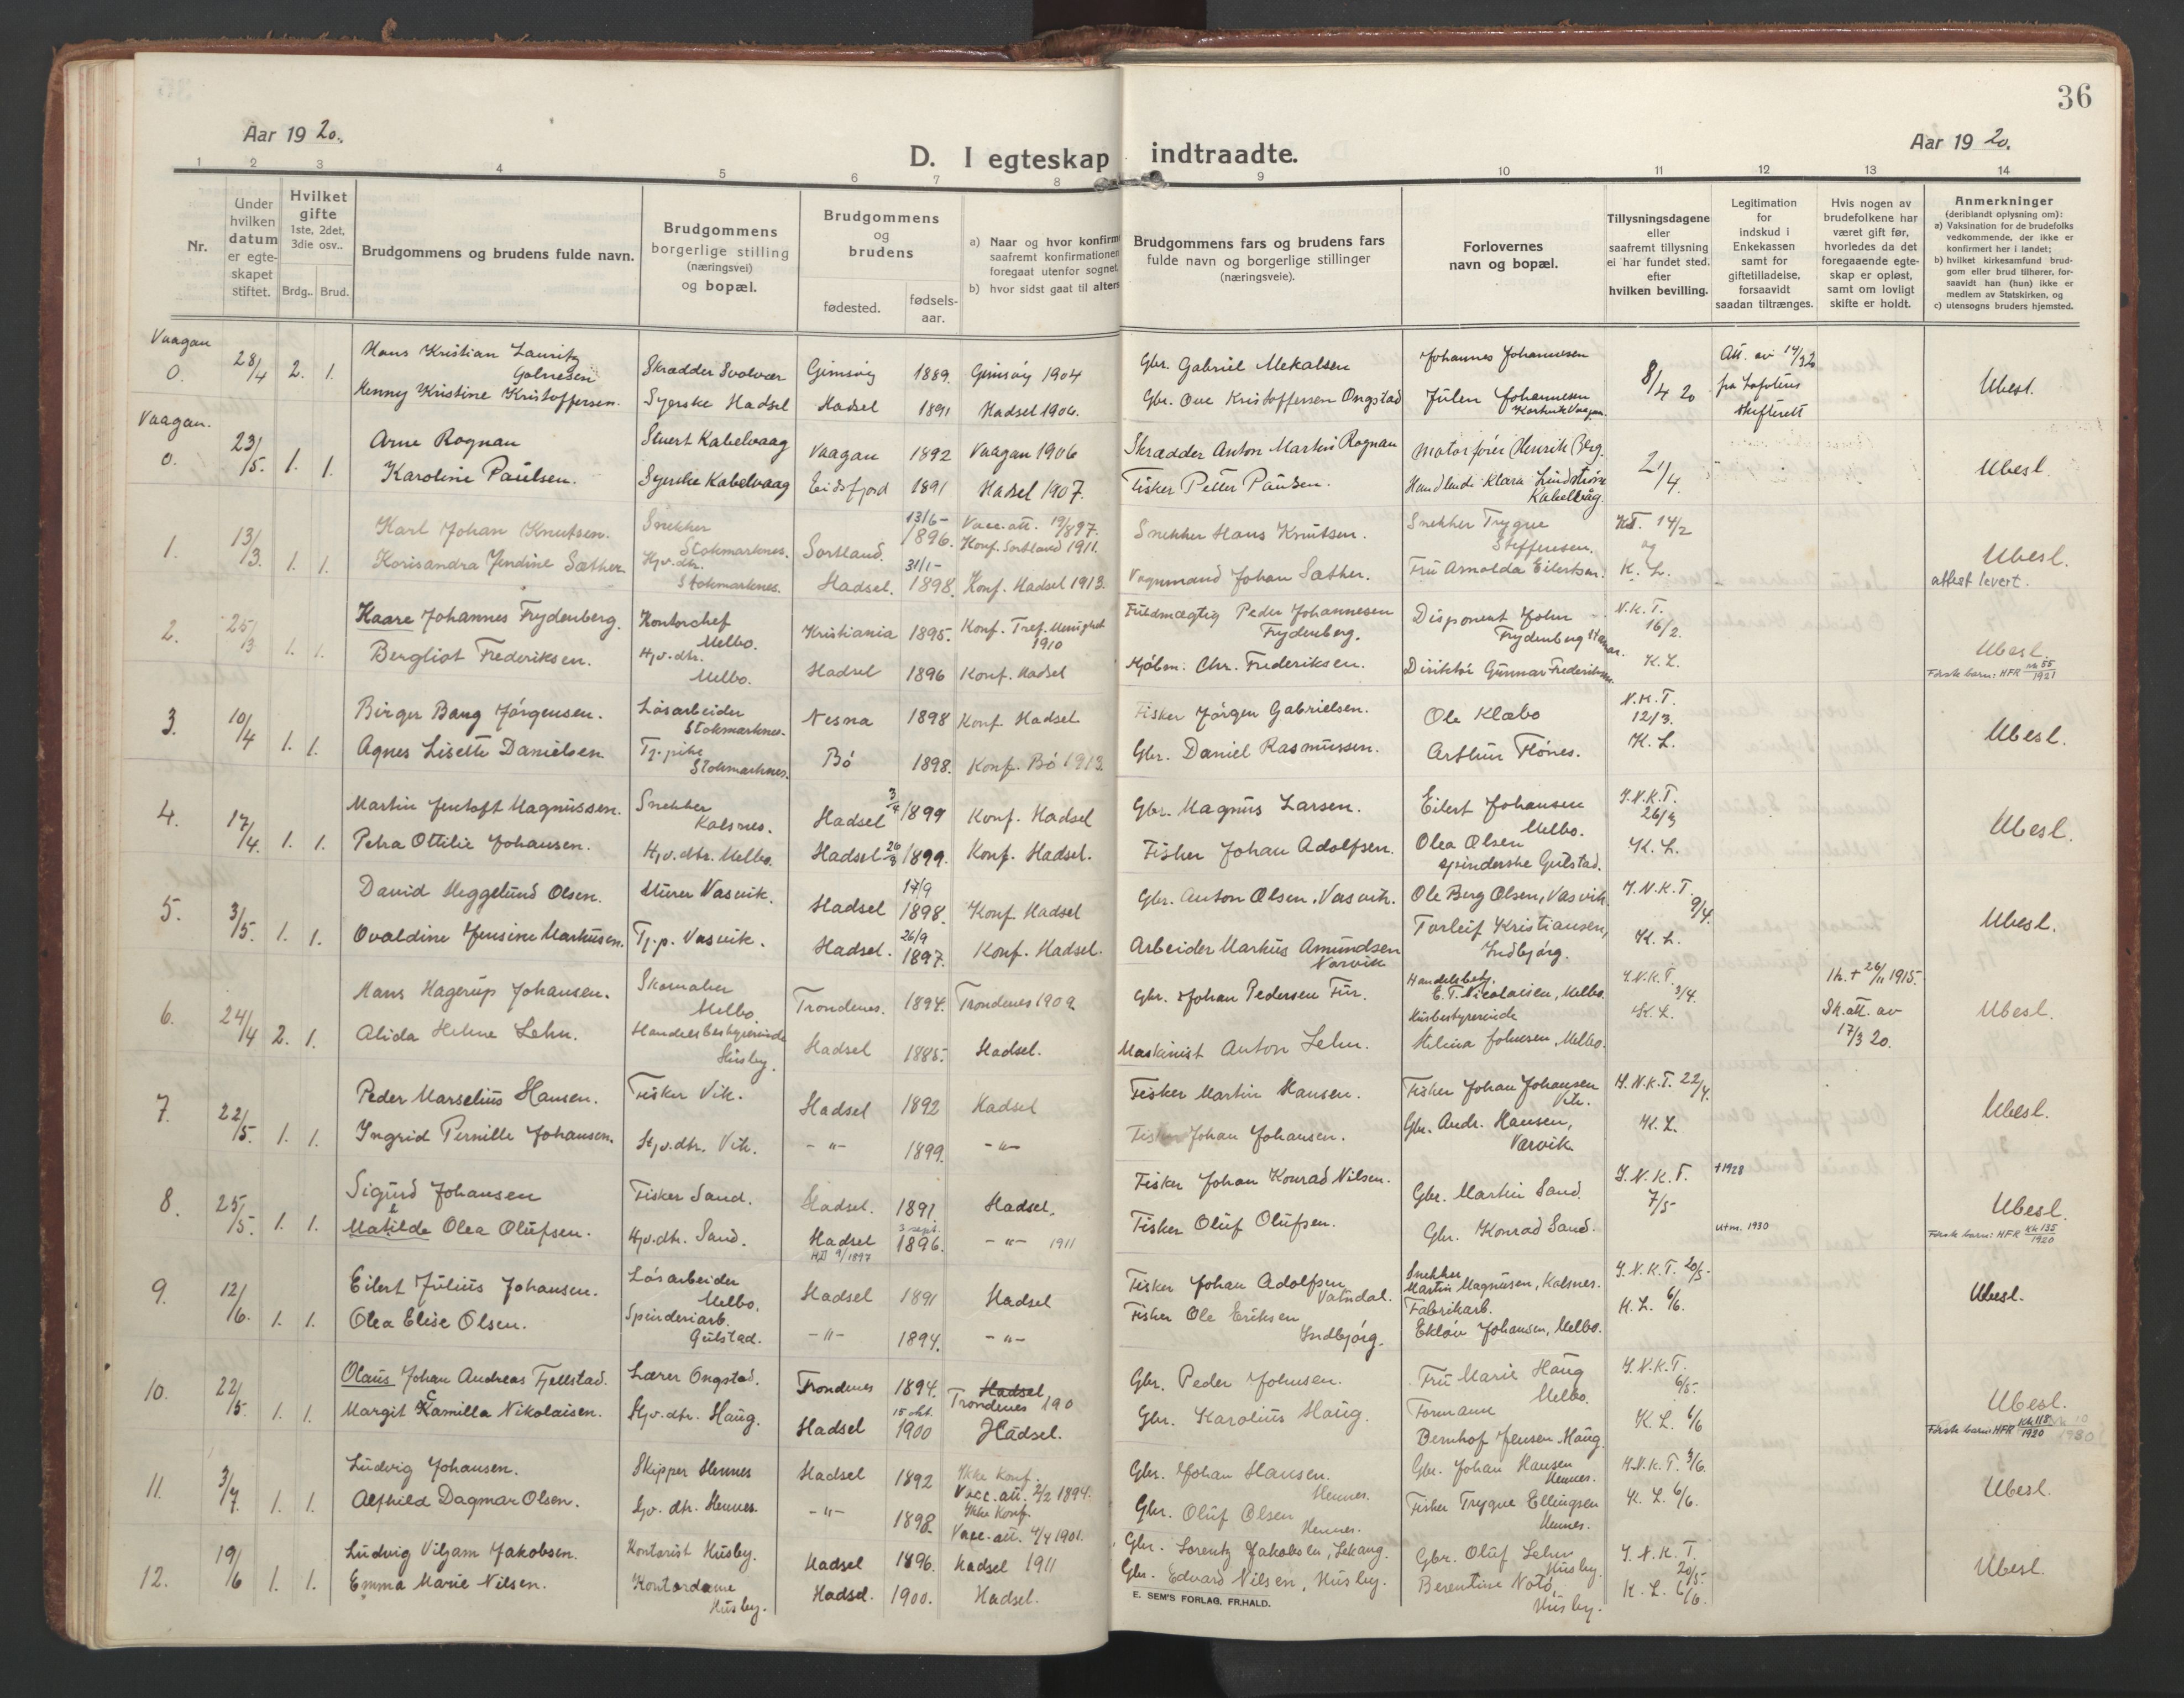 36
Aar 1920.
D. I egteskap indtraadte.
Aar 1920.
1 2 3 4 5 6 7 8 9 10 11 12 13 14
Nr.
Under hvilken datum er egte-skapet stiftet.
Hvilket gifte 1ste, 2det, 3die osv..
Brdg.. Brud.
Brudgommens og brudens fulde navn.
Brudgommens borgerlige stilling (næringsvei) og bopæl.
Brudgommens og brudens
fødested.
fødsels-aar.
a) Naar og hvor konfirm
saafremt konfirmationen
foregaat utenfor sognet.
b) hvor sidst gaat til alters
Brudgommens fars og brudens fars
fulde navn og borgerlige stillinger
(næringsveie).
Forlovernes
navn og bopæl.
Tillysningsdagene
eller
saafremt tillysning
ei har fundet sted.
efter
hvilken bevilling.
Legitimation
for
indskud i
Enkekassen
samt for
giftetilladelse,
forsaavidt
saadan tiltrænges.
Hvis nogen av
brudefolkene har
været gift før,
hvorledes da det
foregaaende egte-
skap er opløst,
samt om lovligt
skifte er holdt.
Anmerkninger
(deriblandt oplysning om):
a) Vaksination for de brudefolks
vedkommende, der ikke er
konfirmert her i landet;
b) hvilket kirkesamfund brud-
gom eller brud tilhører, for-
saavidt han (hun) ikke er
medlem av Statskirken, og
c) utensogns bruders hjemsted.
Vaagan
0. 28/4 2. 1. Hans Kristian Lauritz Skrædder Svolvær Gimsøy 1889. Gimsøy 1904 Gbr. Gabriel Mekalsen Johannes Johannesen 8/4 20 Att. av 14/3 20 fra Lofotens skifterett Ubesl.
Henny Kristine Kristoffersen. Syerske Hadsel Hadsel 1891 Hadsel 1906. Gbr. Ove Kristoffersen Ongstad Julen Johannesen
Vaagan.
0. 23/5. 1. 1. Arne Rognan Stuert Kabelvaag Vaagan 1892 Vaagan 1906 Skrædder Anton Martin Rognan Motorfører Henrik Berg. 21/4. Ubesl.
Karoline Paulsen. Syerske Kabelvaag Eidsfjord 1891 Hadsel 1907. Fisker Petter Paulsen. Handlende Klara Lindstrøm Kabelvåg.
1. 13/3. 1. 1. Karl Johan Knutsen. Snekker Stokmarknes. Sortland. 13/6- 1896. Vacc. att. 19/8 97. Konf. Sortland 1911. Snekker Hans Knutsen. Snekker Trygve Steffensen. 14/2 og Ubesl.
Korisandra Jendine Sæther Hjv.dtr. Stokmarknes. Hadsel. 31/1- 1898. Konf. Hadsel 1913. Vognmand Johan Sæther. Fru Arnolda Eilertsen. K. L. attest levert.
2. 25/3 1. 1. Kaare Johannes Frydenberg. Kontorchef Melbo. Kristiania 1895. Konf. Tref. Menighet 1910 Fuldmægtig Peder Johannesen Frydenberg. Disponent John Frydenberg Hamar. N.K.T. 16/2. Ubesl.
Bergliot Frederiksen. Hjv.dtr. Melbo. Hadsel 1896 Konf. Hadsel Kjøbm. Chr. Frederiksen. Direktør Gunnar Frederiksen K.L. Første barn: HFR Kk 55/1921
3. 10/4 1. 1. Birger Bang Jørgensen. Løsarbeider Stokmarknes. Nesna 1898 Konf. Hadsel Fisker Jørgen Gabrielsen. Ole Klæbo N.K.T. 12/3. Ubesl.
Agnes Lisette Danielsen. Tj.pike Stokmarknes. Bø 1898. Konf. Bø 1913. Gbr. Daniel Rasmussen. Arthur Flønes. K.L.
4. 17/4. 1. 1. Martin Jentoft Magnussen. Snekker Kalsnes. Hadsel 3/4 1899 Konf. Hadsel Gbr. Magnus Larsen. Eilert Johansen Melbo. I.N.K.T. 26/3 Ubesl.
Petra Ottilie Johansen. Hjv.dtr. Melbo. Hadsel 26/3 1899. Konf. Hadsel. Fisker Johan Adolfsen. Olea Olsen spinderske Gulstad. K.L.
5. 3/5. 1. 1. David Heggelund Olsen. Murer Vasvik. Hadsel 17/9 1898. Konf. Hadsel Gbr. Anton Olsen, Vasvik. Ole Berg Olsen, Vasvik I.N.K.T. 9/4. Ubesl.
Ovaldine Jensine Markusen. Tj.p. Vasvik. Hadsel. 26/9 1897. Konf. Hadsel. Arbeider Markus Amundsen Narvik Torleif Kristiansen, Indbjørg. K.L.
6. 24/4 2. 1. Hans Hagerup Johansen. Skomaker Melbo. Trondenes. 1894. Trondenes 1909 Gbr. Johan Pedersen Fur. Handelsbetj. E. T. Nicolaisen, Melbo. I.N.K.T. 3/4. 1h. + 26/11 1915. Sk. att. av 17/3 20. Ubesl.
Alida Helene Lehn. Handelsbestyrerinde Husby. Hadsel 1885. Hadsel. Maskinist Anton Lehn. Husbestyrerinde Helena Johnsen, Melbo. K.L.
7. 22/5. 1. 1. Peder Marselius Hansen. Fisker Vik. Hadsel 1892 Hadsel Fisker Martin Hansen. Fisker Johan Johansen Vik. I.N.K.T. 22/4. Ubesl.
Ingrid Pernille Johansen. Hjv.dtr. Vik. -"- 1899. -"- Fisker Johan Johansen. Gbr. Andr. Hansen, Varvik K.L.
8. 25/5. 1. 1. Sigurd Johansen Fisker Sand. Hadsel. 1891 Hadsel. Fisker Johan Konrad Nilsen. Gbr. Martin Sand. I.N.K.T. 7/5 †1928 Ubesl.
Matilde Olea Olufsen. Hjv.dtr. Sand. Hadsel 3 sept. 1896. -"- 1911 Fisker Oluf Olufsen. Gbr. Konrad Sand. utm. 1930 Første barn: HFR Kk 135/1920
9/1897
9. 12/6. 1. 1. Eilert Julius Johansen. Løsarbeider Melbo. Hadsel 1891 Hadsel Fisker Johan Adolfsen Vatndal. Snekker Martin Magnusen, Kalsnes. I.N.K.T. 20/5- Ubesl.
Olea Elise Olsen. Spinderiarb. Gulstad. -"- 1894. -"- Fisker Ole Eriksen Indbjørg. Fabrikarb. Ekløv Johansen, Melbo. K.L. 6/6.
10. 22/5. 1. 1. Olaus Johan Andreas Fjellstad. Lærer Ongstad. Trondenes 1894. Hadsel Trondenes 190 Gbr. Peder Johnsen. Fru Marie Haug Melbo. I.N.K.T. 6/5- Ubesl.
Margit Camilla Nikolaisen. Hjv.dtr. Haug. Hadsel 15 okt. 1900 Hadsel. Gbr. Karolius Haug. Formann Bernhof Jensen Haug. K.L. 6/6 Første barn: HFR Kk 118/1920
11. 3/7. 1. 1. Ludvig Johansen. Skipper Hennes Hadsel 1892 Ikke konf. Vacc. att. 2/2 1894. Gbr. Johan Hansen. Hennes. Gbr. Johan Hansen Hennes. I.N.K.T. 3/6. Ubesl.
Alfhild Dagmar Olsen. Hjv. dtr. Hennes. -"- 1898. Ikke Konf. Vacc. att. 4/4 1901. Gbr. Oluf Olsen Hennes. Fisker Trygve Ellingsen Hennes. K.L. 6/6.
12. 19/6 1. 1. Ludvig Viljam Jakobsen. Kontorist Husby. Hadsel 1896. Hadsel 1911 Gbr. Lorentz Jakobsen, Lekang. Gbr. Oluf Lehn Husby. I.N.K.T. 20/5. Ubesl.
Emma Marie Nilsen. Kontordame Husby. Hadsel. 1900. Hadsel. Gbr. Edvard Nilsen, Husby. Berentine Notø, Husby. K.L. 6/6.
E. SEM'S FORLAG, FR.HALD.